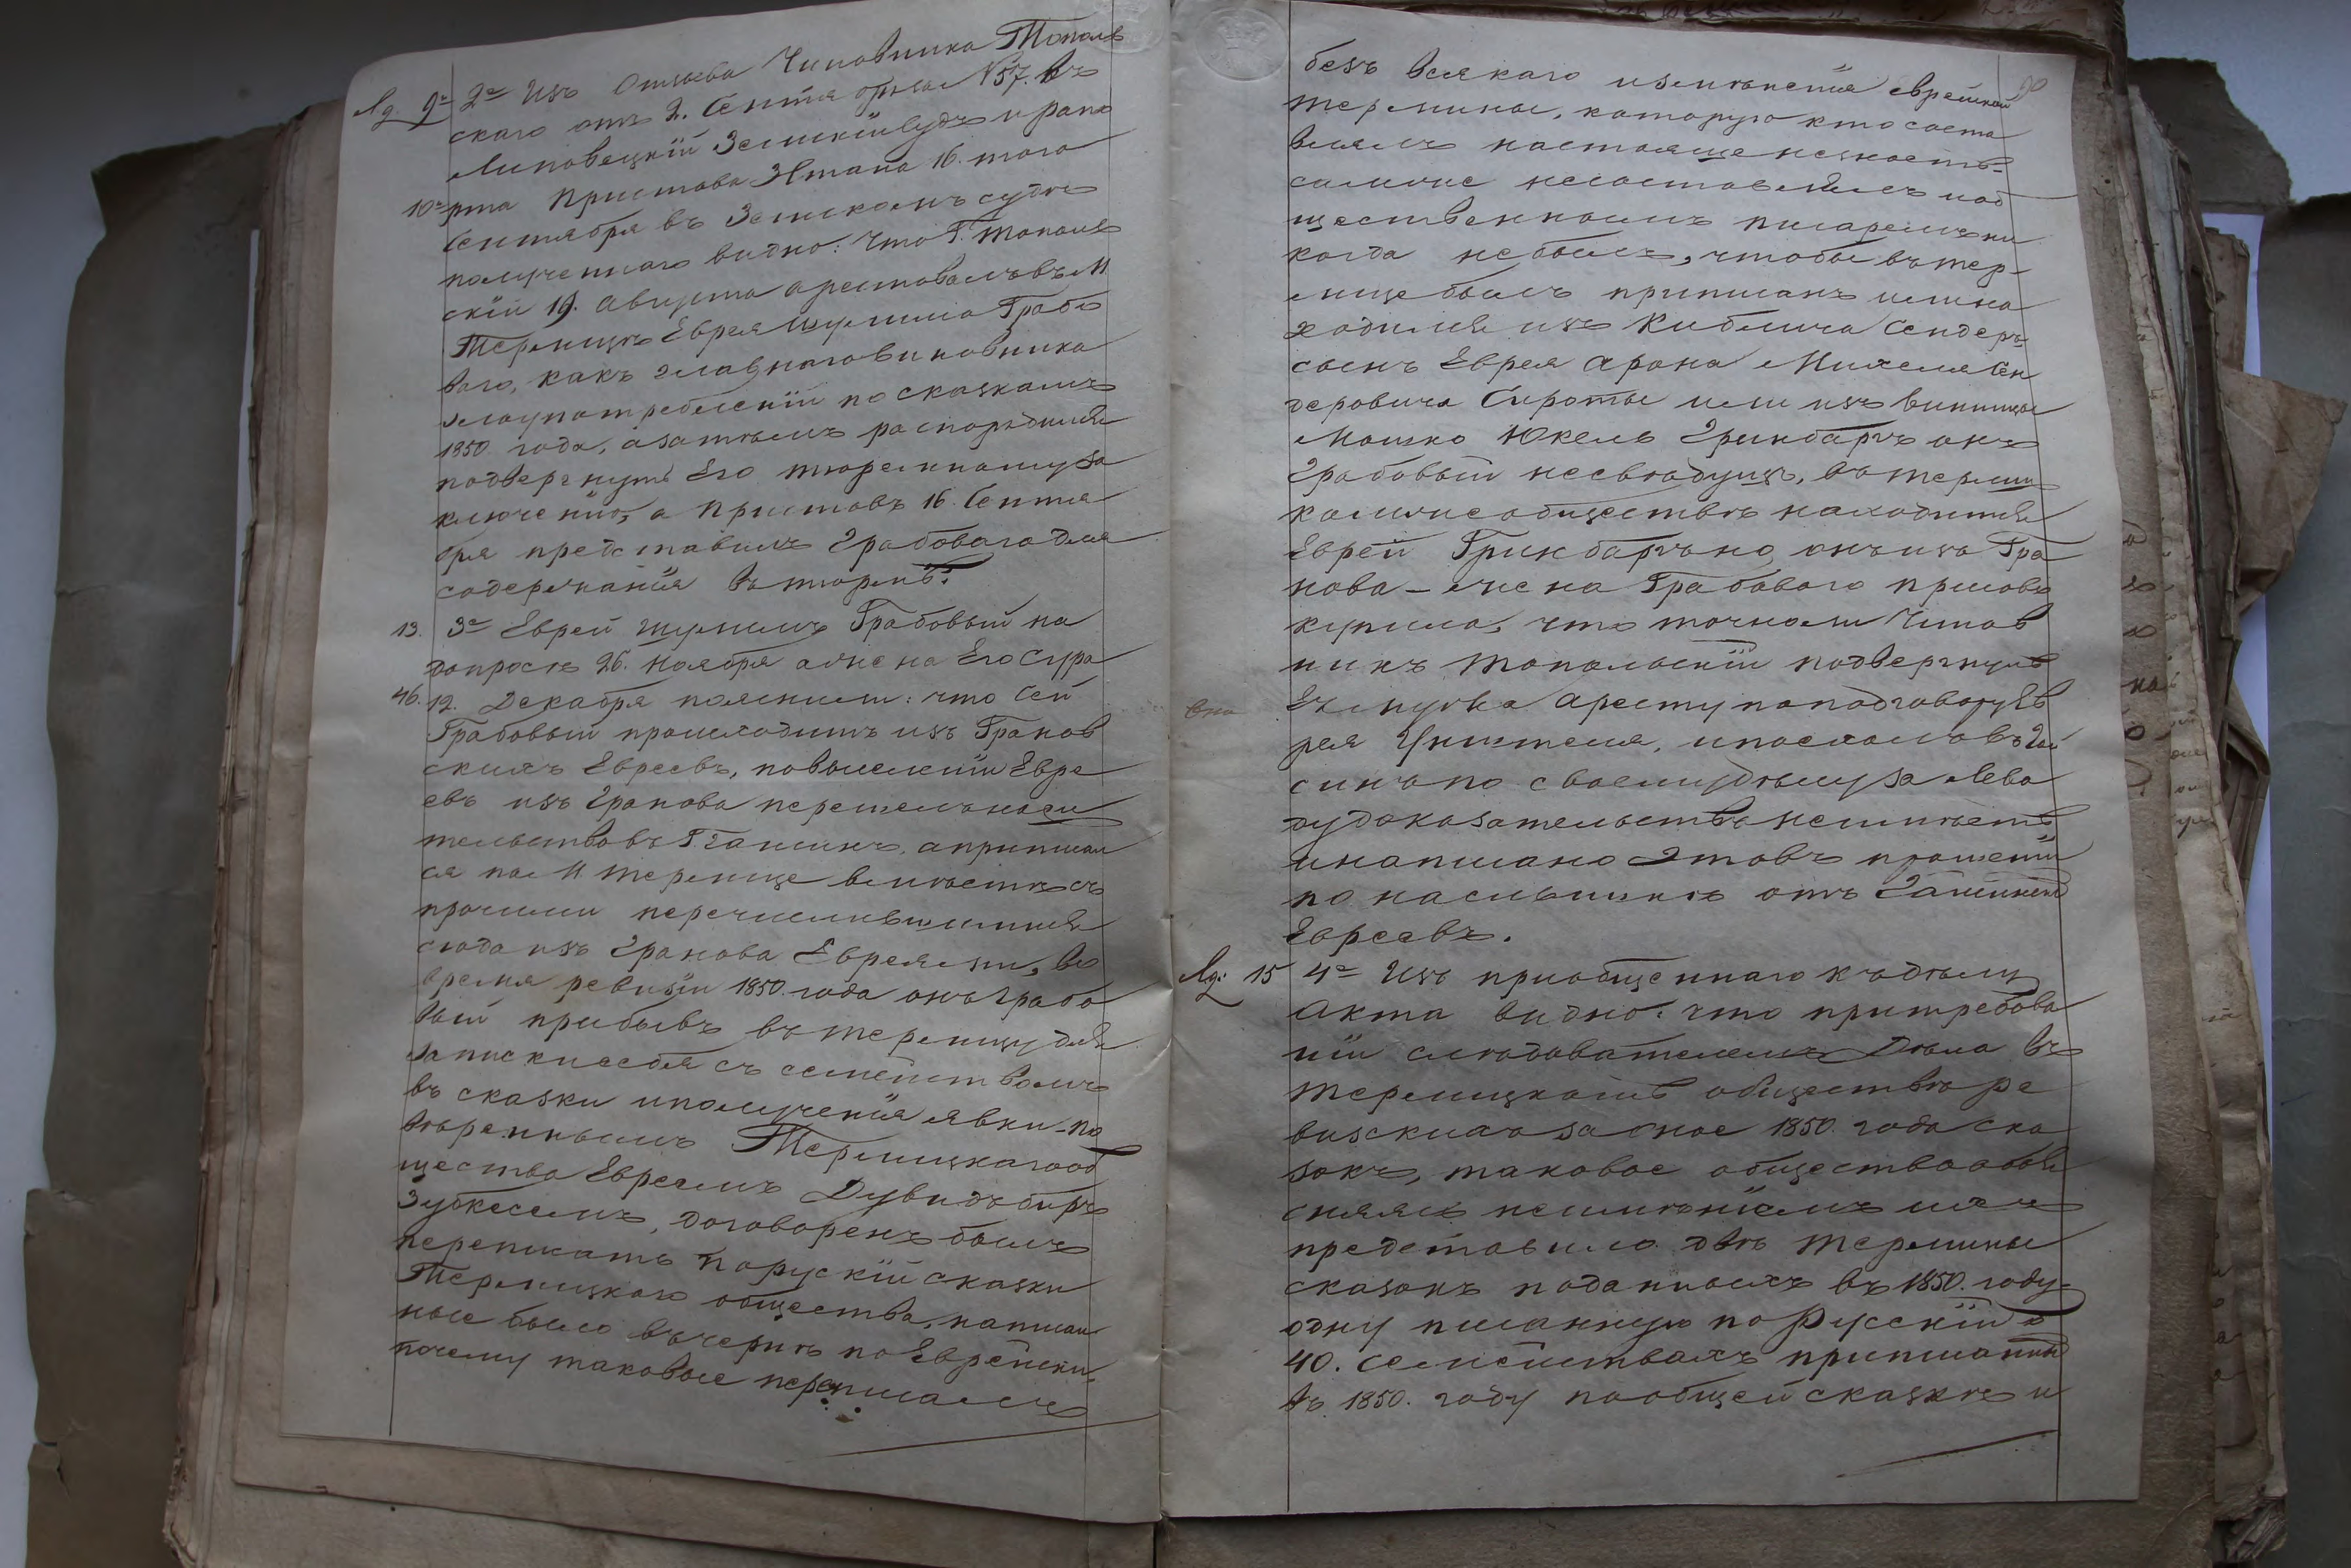 Лд. 9. 2е Изъ Отзыва Чиновника Тополь
скаго отъ 2. Сентября №57. въ
Липовецкій Земскій судъ и рапо
10. рта Пристава 3 Стана 16. того
Сентября въ Земскомъ судѣ
полученнаго видно: что Г. Тополь
скій 19. Августа арестовалъ въ М
Терлицѣ Еврея Шулима Грабо
ваго, какъ главнаго виновника
злоупотребленій по сказкамъ
1850 года, а затѣмъ распорядился
подвергнуть Его тюремному за
ключенію, а Приставъ 16. Сентя
бря представилъ Грабоваго для
содержанія въ тюрмѣ.
13. 3е Еврей Шулимъ Грабовый на
допросѣ 26. Ноября а жена Его Сура
46. 12. Декабря пояснили: что Сей
Грабовый происходитъ изъ Гранов
скихъ Евреевъ, по выселеніи Евре
евъ изъ Гранова перешелъ на жи
тельство въ Г Гайсинъ, а приписал
ся по М Терлице вмѣстѣ съ
прочими перечислившимися
сюда изъ Гранова Евреями, во
время ревизіи 1850 года онъ Грабо
вый прибывъ въ Терлицу для
записки себя съ семействомъ
въ сказки и полученія явки по
вѣреннымъ Терлицкаго об
щества Евреемъ Дувидъ Беръ
Зубкесомъ, договоренъ былъ
переписать порускій сказки
Терлицкаго общества, написан
ные было въ чернѣ по Еврейски,
почему таковые переписалъ
90
безъ всякаго измѣненія еврейской
термины, которую кто соста
влялъ настояще незнаетъ
сам же несоставлялъ и об
щественнымъ писаремъ ни
когда небылъ, чтобы въ тер-
лице былъ приписанъ или на
ходился изъ Кублича Сендеръ
сынъ Еврея Арона Михеля Сен
деровича Сироты или изъ Винницы
Мошко Юкель Гринбаргъ онъ
Грабовый несвѣдущъ, въ терлиц
комъ же обществѣ находится
Еврей Гринбаргъ но онъ изъ Гра
нова – жена Грабоваго присово
купила, что точно ли Чинов
никъ Топольскій подвергнулъ
вно Ея мужа аресту по подговору Ев
рея Учителя, и поселалъ въ Гай
синъ по своему дѣлу за Лева
ду доказательствъ неимѣетъ
и написано это въ прошеніи
по наслышкѣ отъ Гайсинскихъ
Евреевъ.
Лд: 15 4е Изъ пріобщеннаго къ дѣлу
Акта видно: что при требова
ніи слѣдователемъ Дѣла въ
терлицкомъ обществѣ ре
визскихъ за оное 1850 года ска
зокъ, таковое общество объя
сняясь неимѣніемъ ихъ
представило двѣ термины
сказокъ поданныхъ въ 1850. году
одну писанную по Русскій о
40. семействахъ приписанныхъ
въ 1850. году по общей сказкѣ и